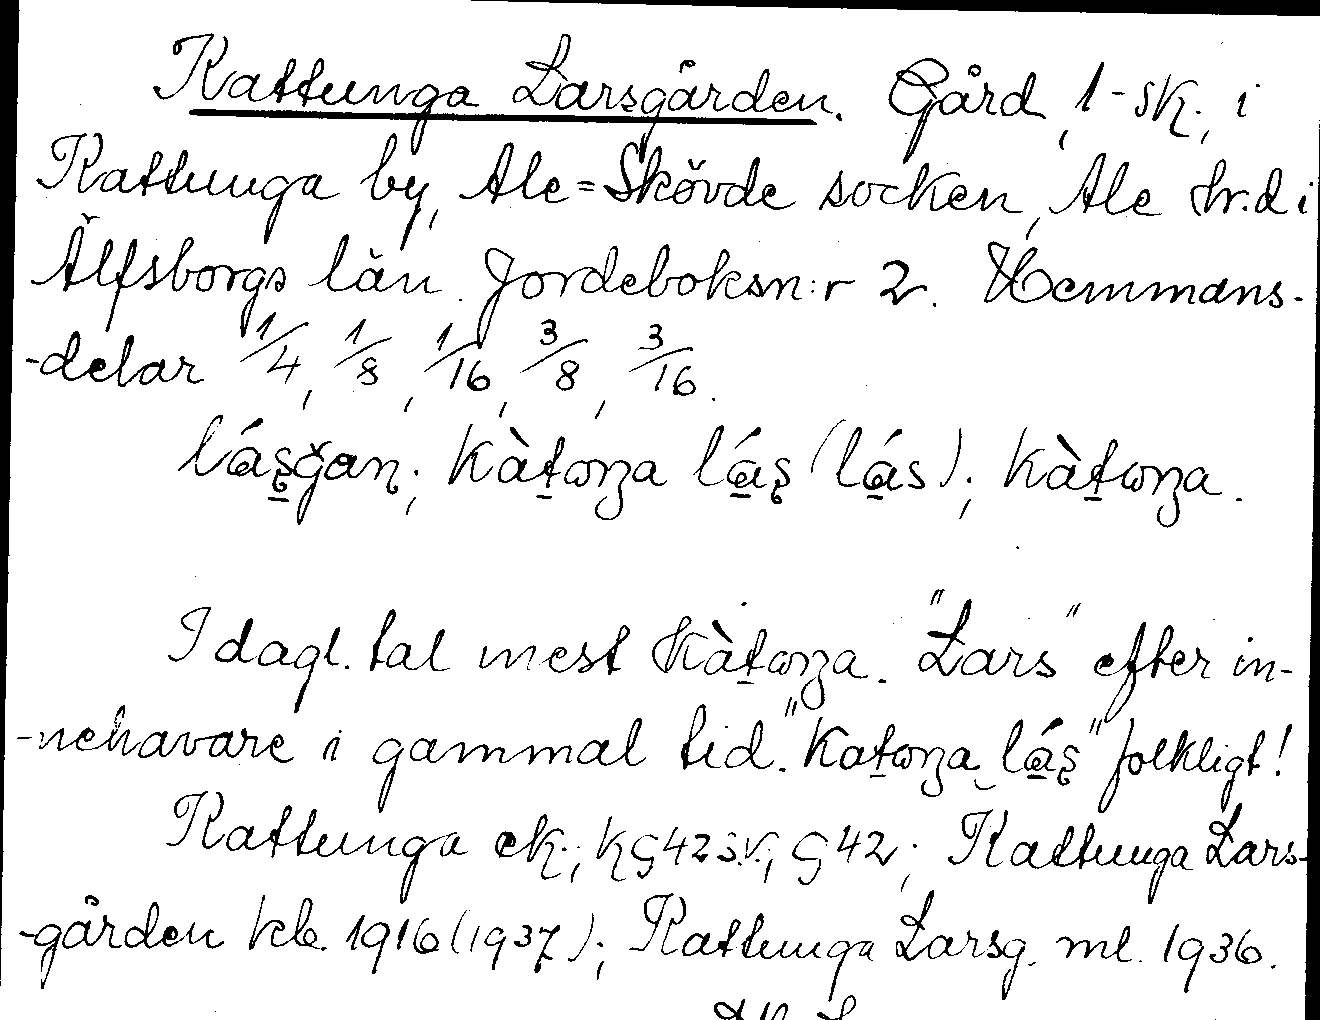 Kattunga Larsgården. Gård, 1-sk., i
Kattunga by, Ale=Skövde socken, Ale hr.d i
Älfsborgs län. Jordeboksn:r 2. Hemmans-
-delar 1/4, 1/8, 1/16, 3/8, 3/16.
lás̨ğan; kàtωŋa lás̨ (lás); kàtωŋa.
I dagl. tal mest kàtωŋa. "Lars" efter in-
-nehavare i gammal tid. "Katωŋa lás̨" folkligt!
Kattunga ek.; kG42sv; G42; Kattunga Lars-
-gården kb. 1916 (1937); Kattunga Larsg. ml. 1936.